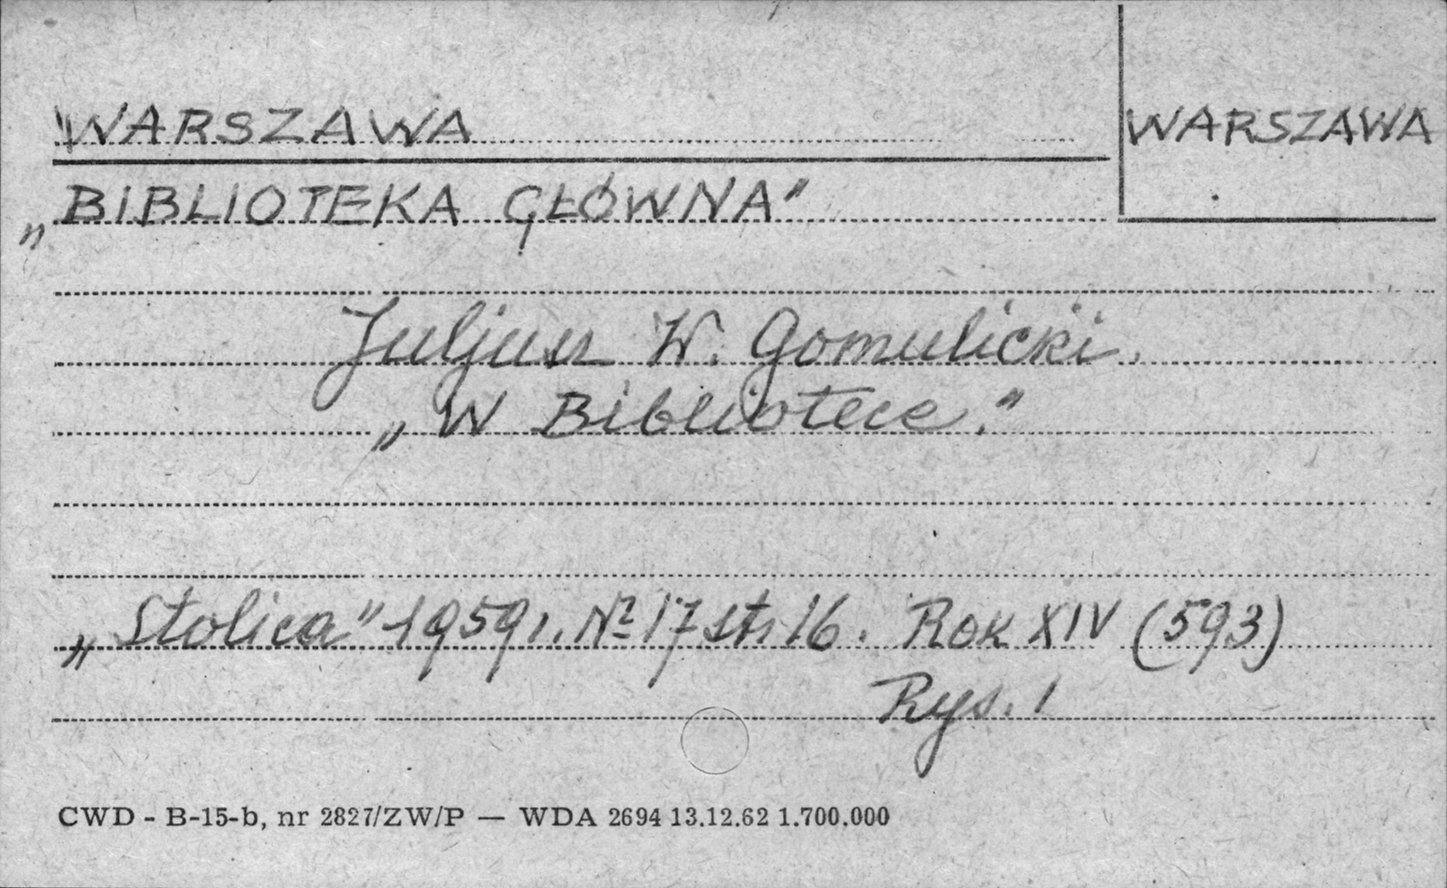 WARSZAWA
WARSZAWA
„BIBLIOTEKA GŁÓWNA"
Juljusz W. Gomulicki.
„W Bibliotece."
„Stolica" 1959 r. Nº 17 str. 16. Rok XIV (593)
Rys. 1
CWD - B-15-b, nr 2827/ZW/P — WDA 2694 13.12.62 1.700.000